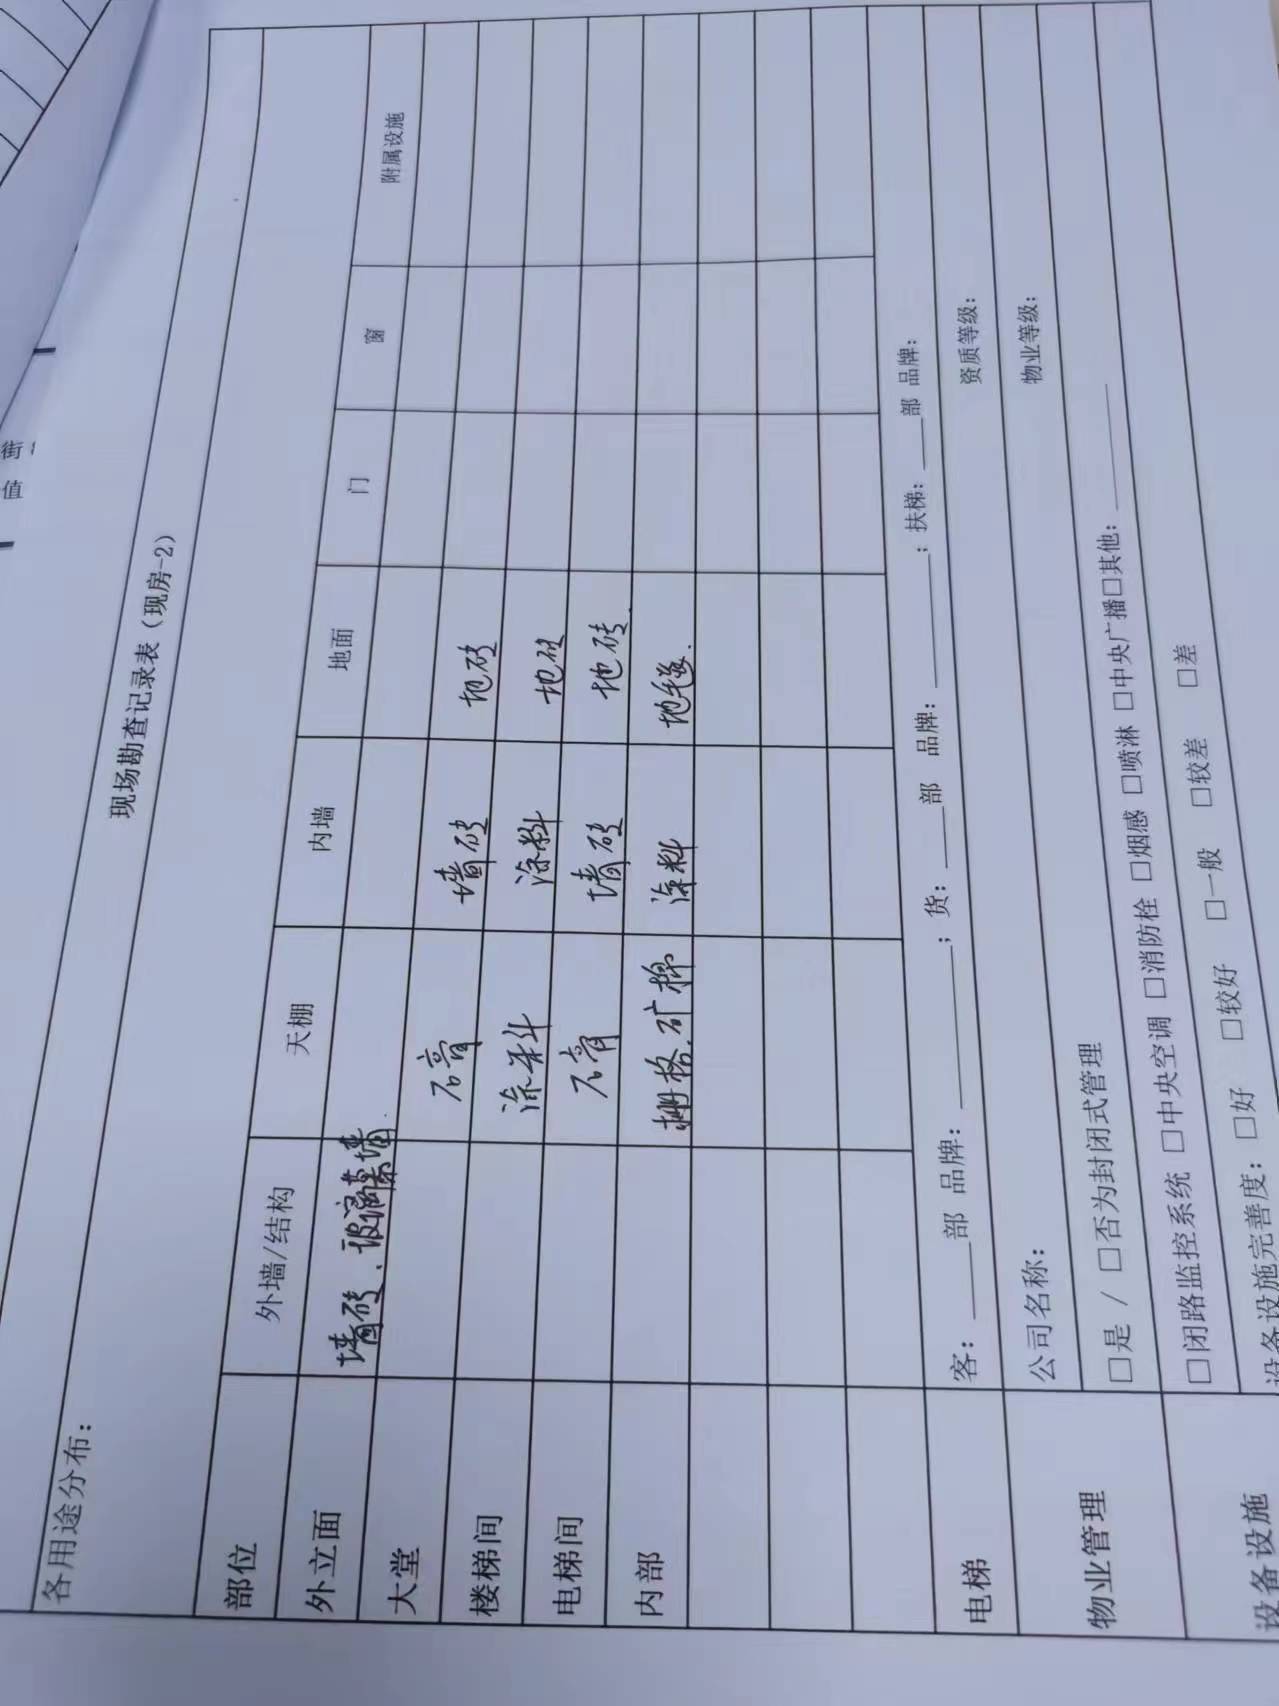 现场勘查记录表（现房-2）
各用途分布：
部位 外墙/结构 天棚 内墙 地面 门 窗 附属设施
外立面 墙砖、玻璃幕墙
大堂 石膏 墙砖 地砖
楼梯间 涂料 涂料 地砖
电梯间 石膏 墙砖 地砖
内部 栅格、矿棉 涂料 地毯
电梯 客：___部 品牌：______；货：___部 品牌：______；扶梯：___部 品牌：
物业管理 公司名称： 资质等级：
□是 / □否为封闭式管理 物业等级：
设备设施 □闭路监控系统 □中央空调 □消防栓 □烟感 □喷淋 □中央广播□其他：______
设备设施完善度：□好 □较好 □一般 □较差 □差
街
值